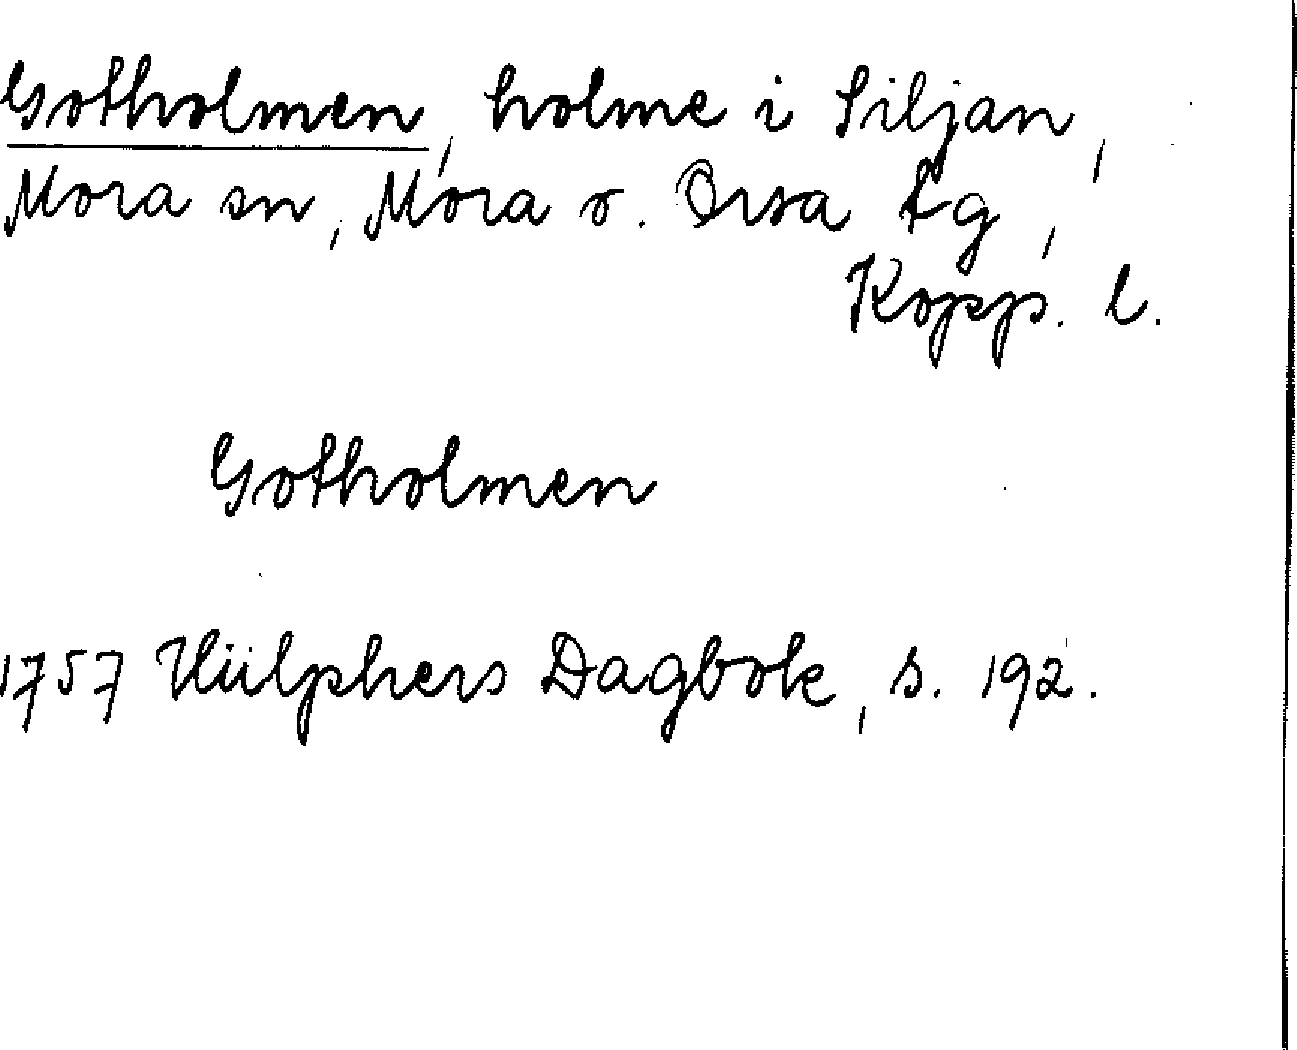 Gotholmen, holme i Siljan,
Mora sn, Mora o. Orsa tg,
Kopp. l.
Gotholmen
1757 Hülphers Dagbok, s. 192.